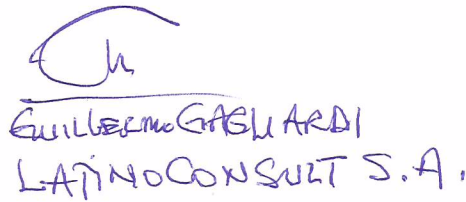 GUILLERMO GAGLIARDI
LATINOCONSULT S.A.